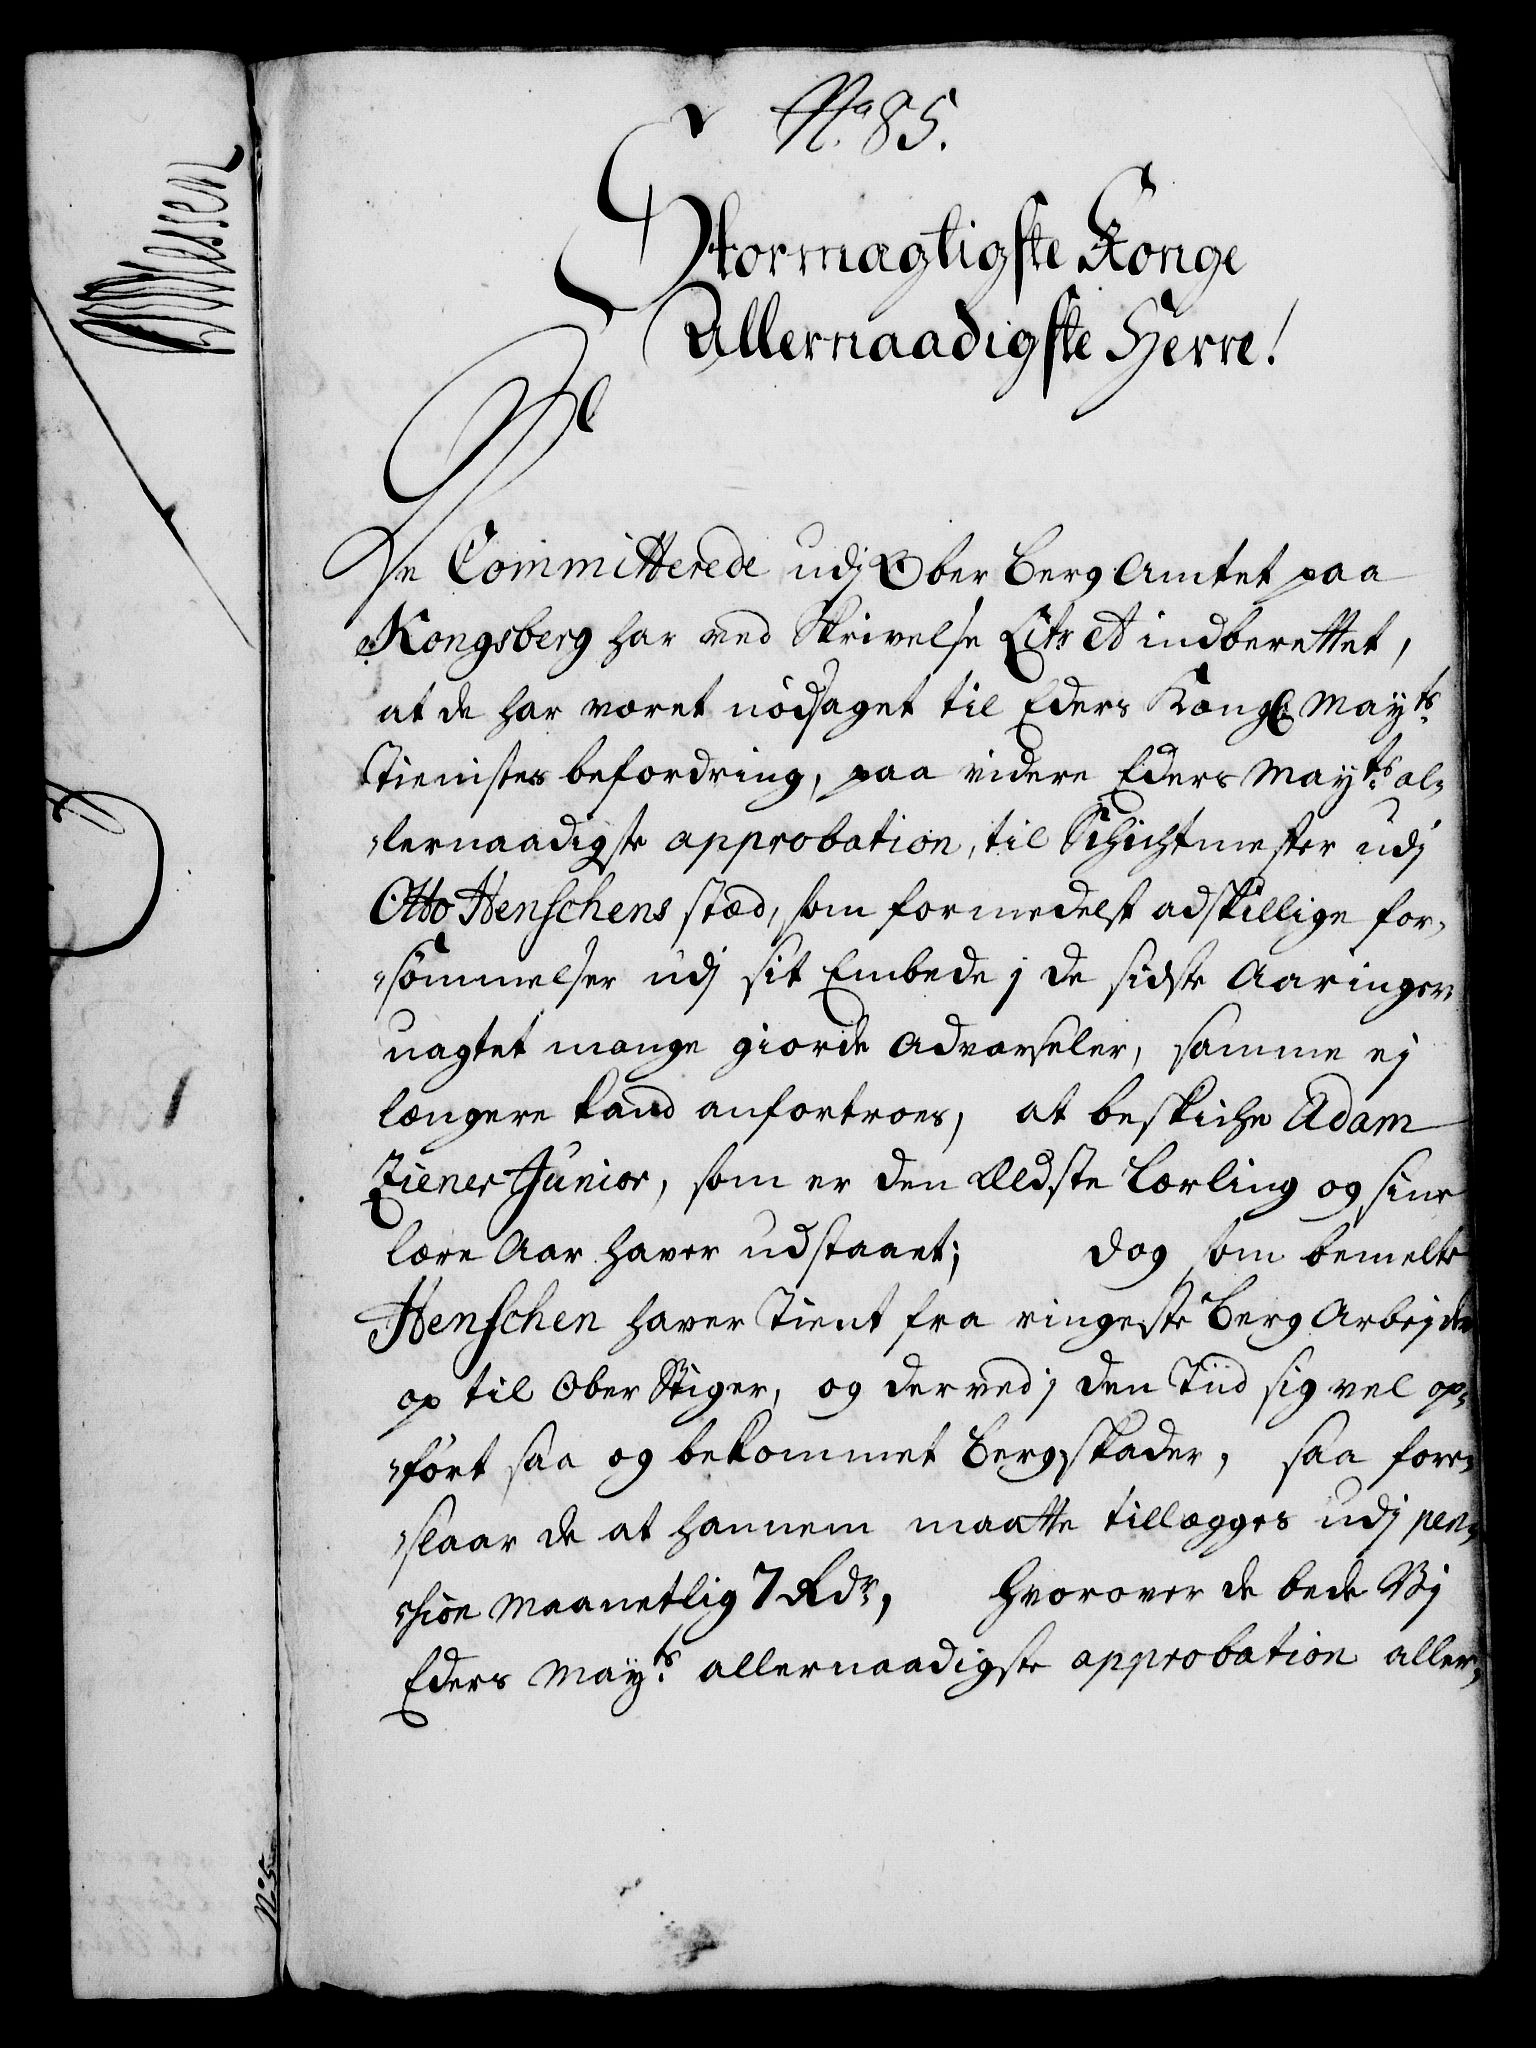 No. 85.
Stormagtigste Konge
Allernaadigste Herre!
De Committerede udj Ober Berg Amtet paa
Kongsberg har ved Skrivelse Litr A indberettet,
at de har været nödsaget til Eders Kongl. Mayts.
Tienistes befordring, paa videre Eders Mayts. al-
lernaadigste approbation, til Schichtmester udj
Otto Henschens stæd, som formedelst adskillige for-
sömmelser udj sit Embede j de sidste Aaringer
uagtet mange giorde Advarseler, samme ej
længere kand anfortroes, at beskiche Adam
Ziener Junior, som er den Ældste Lærling og sine
lære Aar haver udstaaet; dog som bemelte
Henschen haver tient fra ringeste Berg Arbejder
op til Ober Stiger, og derved j den Tiid sig vel op-
fört saa og bekommet Bergskader, saa fore-
slaar de at hannem maatte tillægges udj pen-
sion Maanetlig 7 Rdr, hvorover de bede Vj
Eders Mayts. allernaadigste approbation aller-
No 5